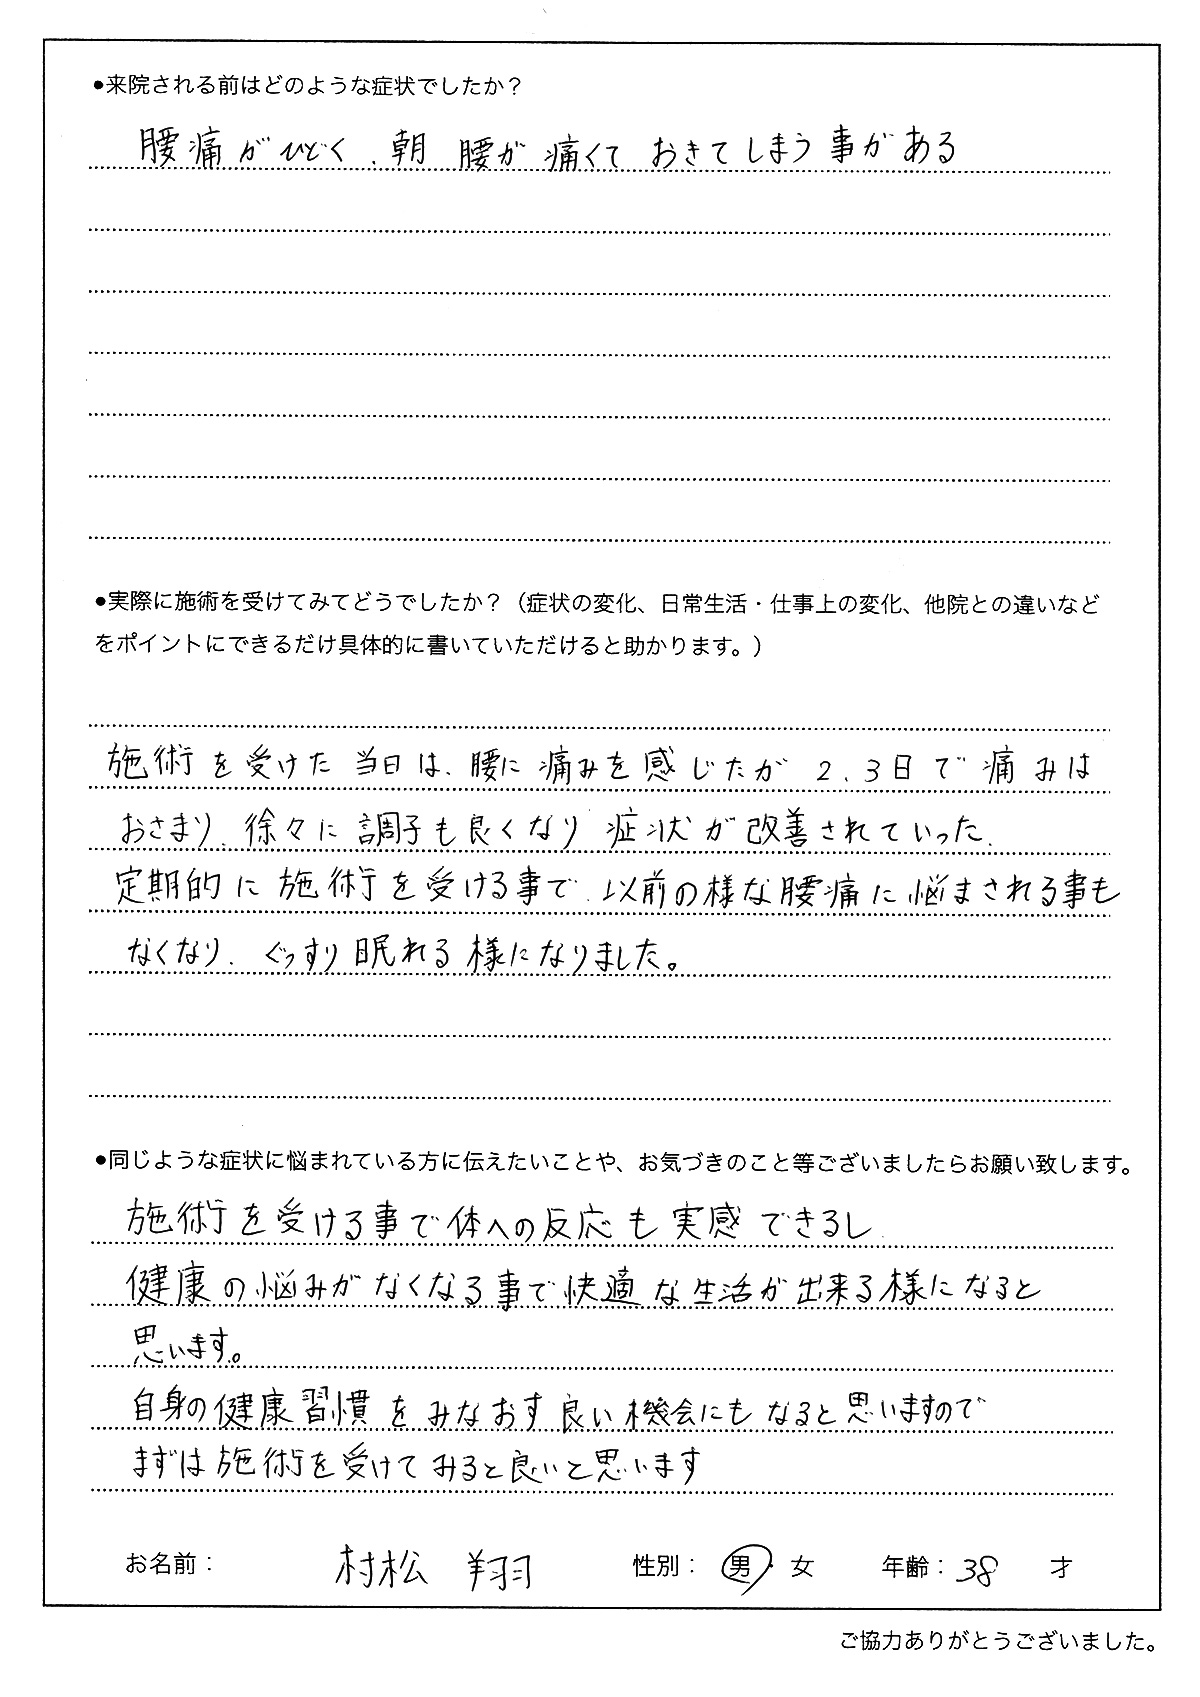 ●来院される前はどのような症状でしたか？
腰痛がひどく、朝 腰が痛くて おきてしまう事がある
●実際に施術を受けてみてどうでしたか？（症状の変化、日常生活・仕事上の変化、他院との違いなど
をポイントにできるだけ具体的に書いていただけると助かります。）
施術を受けた当日は、腰に痛みを感じたが 2、3日で痛みは
おさまり、徐々に調子も良くなり 症状が改善されていった、
定期的に施術を受ける事で、以前の様な腰痛に悩まされる事も
なくなり、ぐっすり眠れる様になりました。
●同じような症状に悩まれている方に伝えたいことや、お気づきのこと等ございましたらお願い致します。
施術を受ける事で体への反応も実感できるし
健康の悩みがなくなる事で快適な生活が出来る様になると
思います。
自身の健康習慣をみなおす良い機会にもなると思いますので
まずは施術を受けてみると良いと思います
お名前： 村松 翔 性別： 男・女 年齢：38 才
ご協力ありがとうございました。